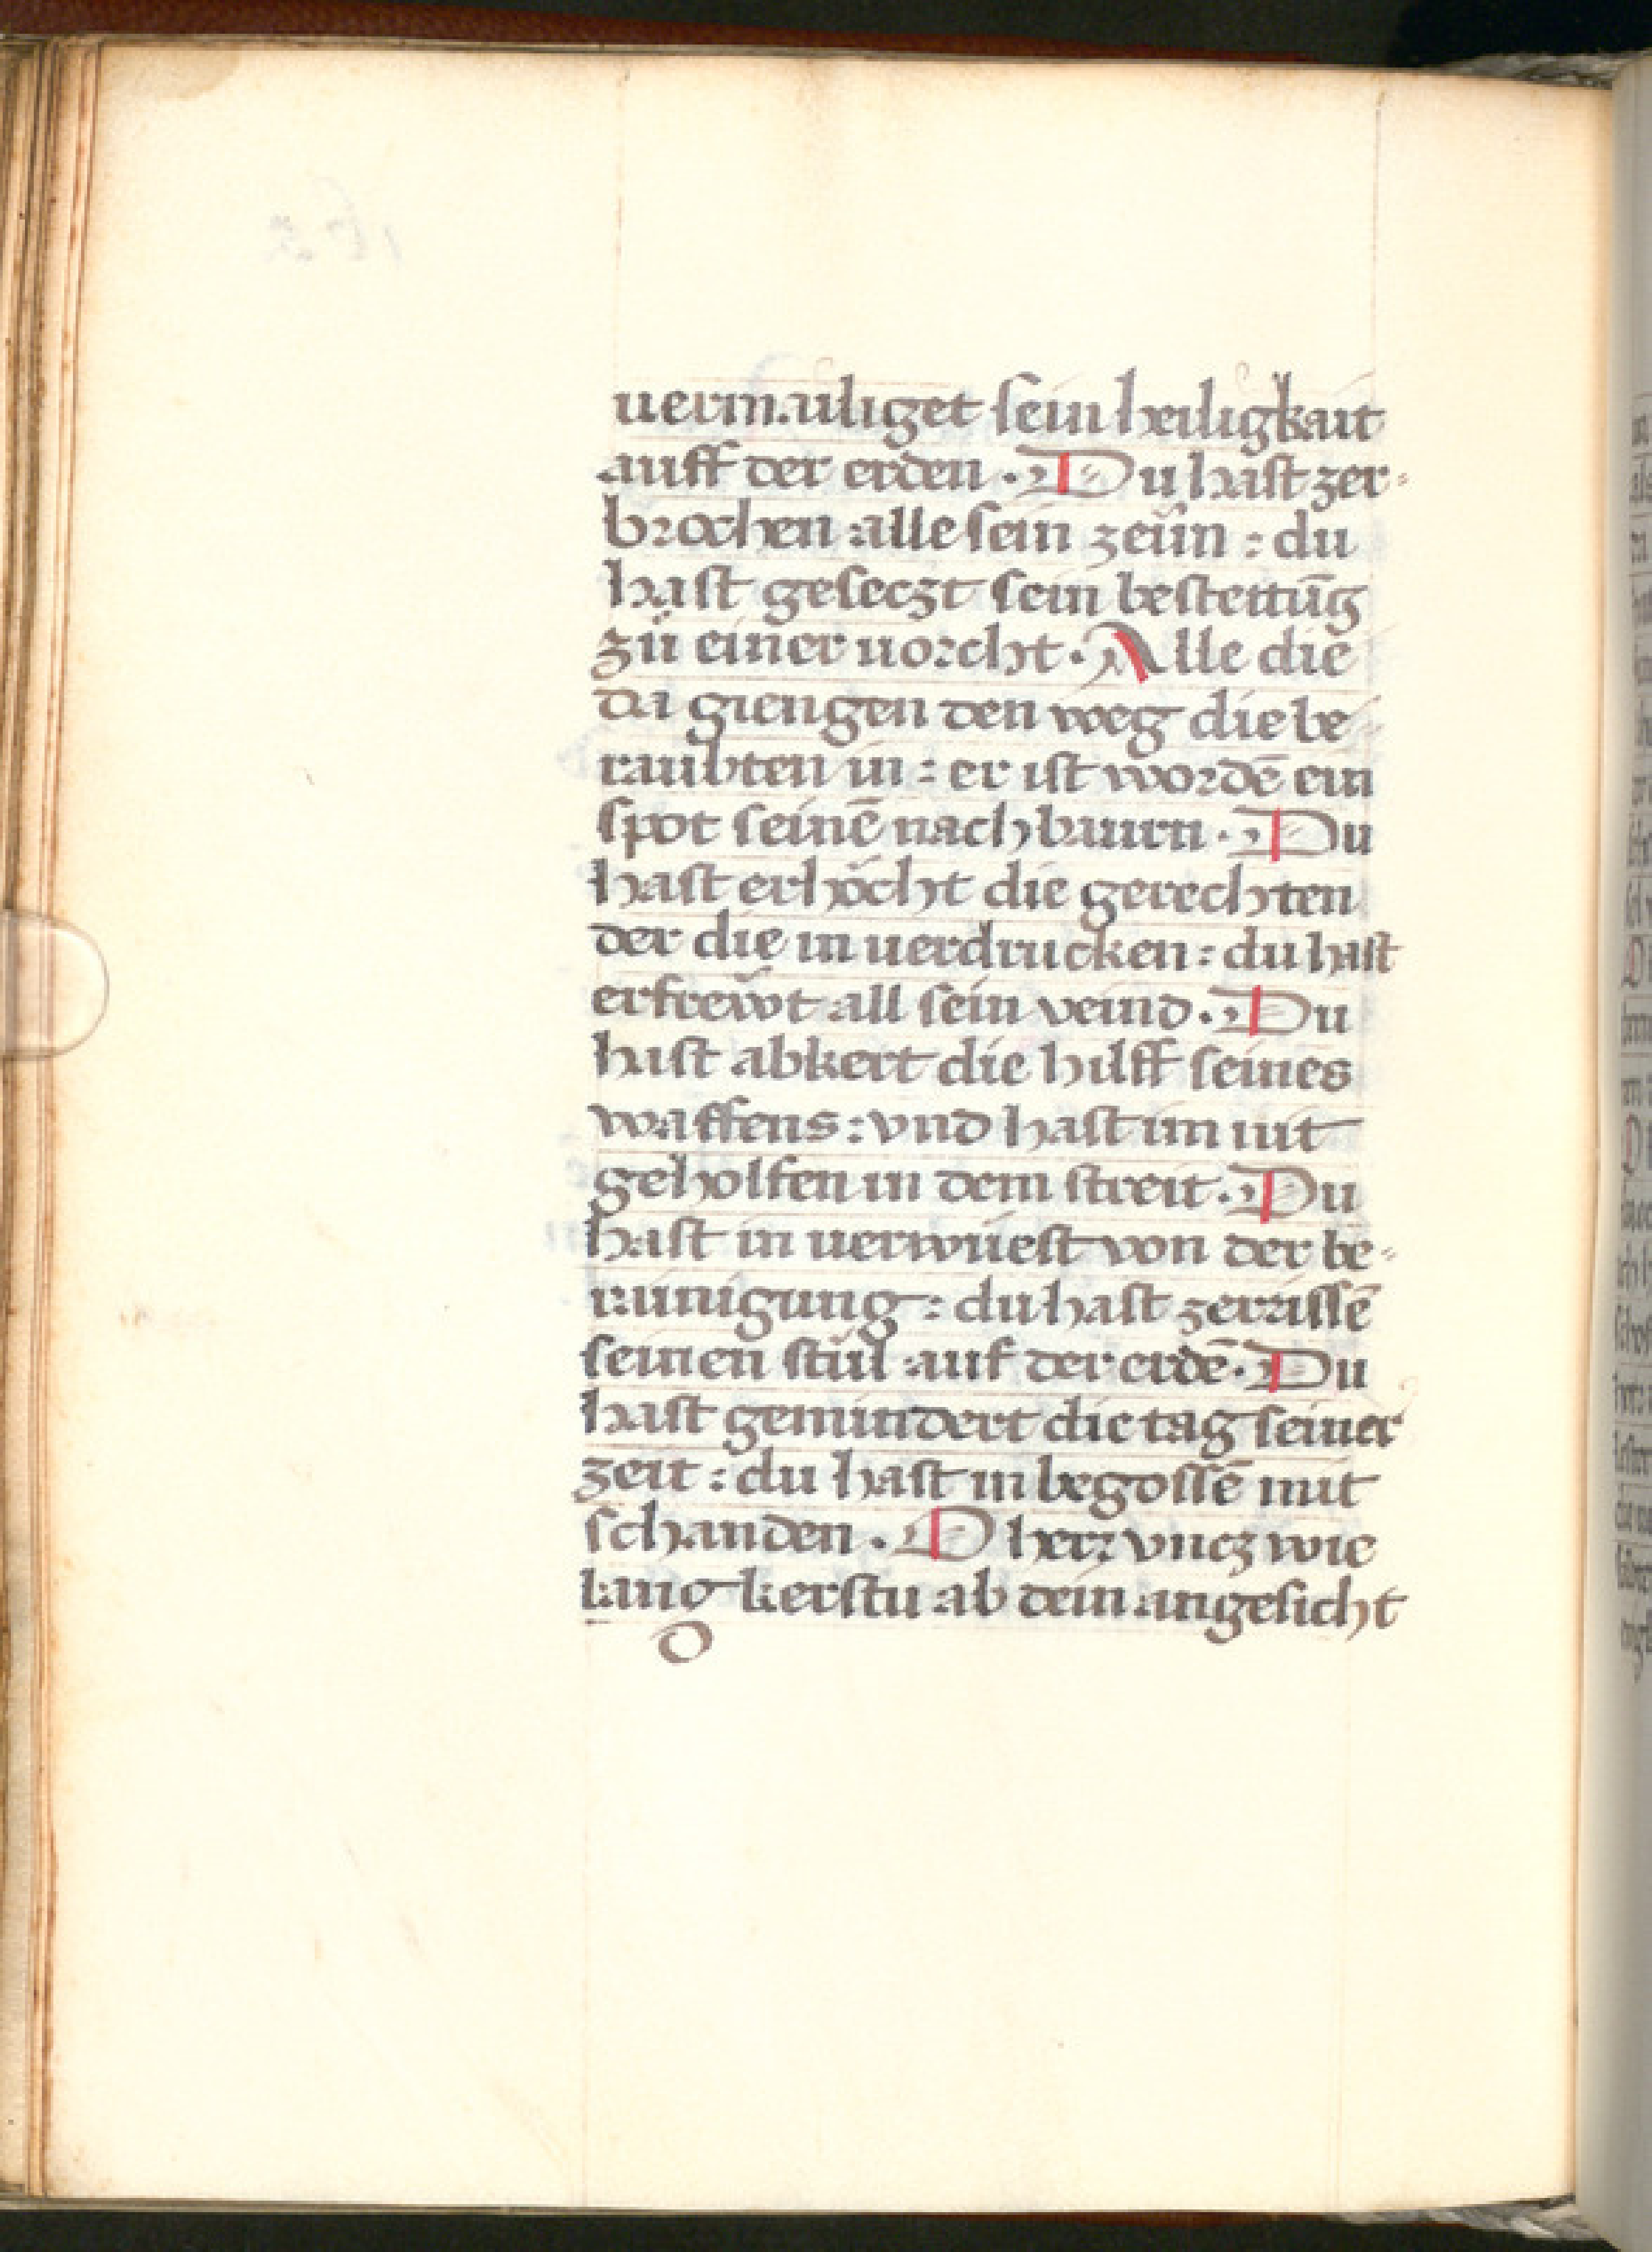 uermailiget sein heiligkait
auff der erden . Du hast zer⸗
brochen alle sein zeün : du
hast geseczt sein bestettūg
zü einer uorcht . Alle die
da giengen den weg die be
raubten in : er ist wordē ein
spot seinē nachbaurn . Du
hast erhöcht die gerechten
der die in uerdrucken : du hast
erfrewt all sein veind . Du
hast abkert die hilff seines
waffens : vnd hast im nit
geholfen in dem streit . Du
hast in uerwuest von der be⸗
rainigung : du hast zerrissē
seinen stül auf der erdē . Du
hast gemindert die tag seiner
zeit : du hast in begossē mit
schanden . O herr vncz wie
lang kerstu ab dein angesicht